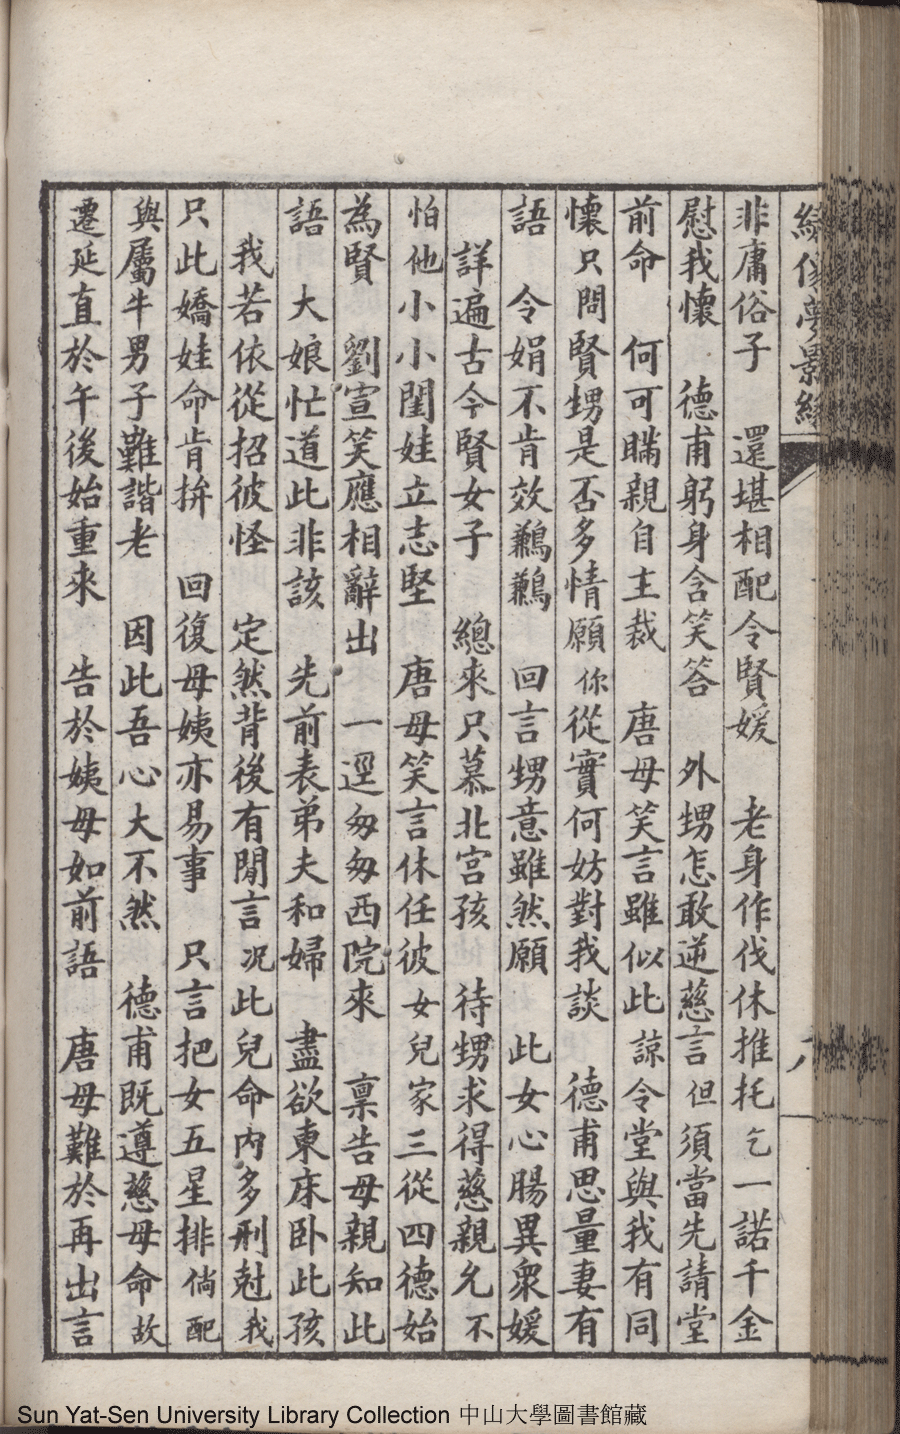 繡像夢影緣
非庸俗子 還堪相配令賢媛 老身作伐休推托 乞一諾千金
慰我懷 德甫躬身含笑答 外甥怎敢逆慈言 但須當先請堂
前命 何可瞞親自主裁 唐母笑言雖似此 諒令堂與我有同
懷 只問賢甥是否多情願 你從實何妨對我談 德甫思量妻有
語 令娟不肯效鶼鶼 回言甥意雖然願 此女心腸異衆媛
詳遍古今賢女子 總來只慕北宮孩 待甥求得慈親允 不
怕他小小閨娃立志堅 唐母笑言休任彼 女兒家三從四德始
為賢 劉宣笑應相辭出 一逕匆匆西院來 稟告母親知此
語 大娘忙道此非該 先前表弟夫和婦 盡欲東床卧此孩
我若依從招彼怪 定然背後有閒言 况此兒命內多刑尅 我
只此嬌娃命肯拚 回復母姨亦易事 只言把女五星排 倘配
與屬牛男子難諧老 因此吾心大不然 德甫既遵慈母命 故
遷延直於午後始重來 告於姨母如前語 唐母難於再出言
Sun Yat-Sen University Library Collection 中山大學圖書館藏